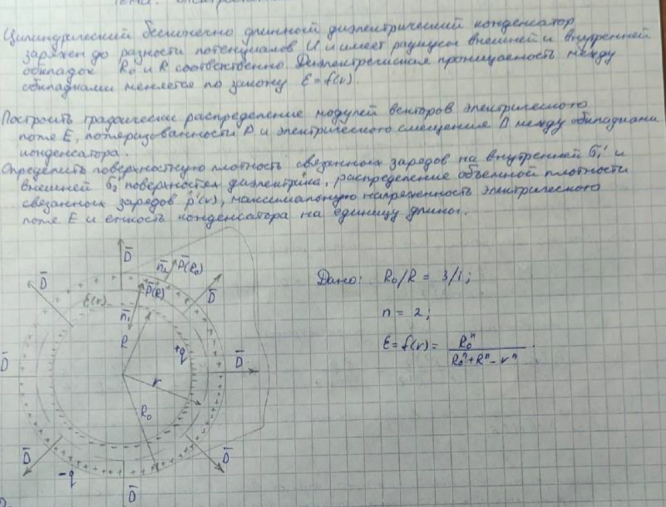 Цилиндрический бесконечно длинный диэлектрический конденсатор
заряжен до разности потенциалов U и имеет радиусы внешней и внутренней
обкладок R₀ и R соответственно. Диэлектрическая проницаемость между
обкладками меняется по закону Ɛ=f(r).
Построить графически распределение модулей векторов электрического
поля E, поляризованности P и электрического смещения D между обкладками
конденсатора.
Определить поверхностную плотность связанных зарядов на внутренней σ₁' и
внешней σ₂' поверхностях диэлектрика, распределение объемной плотности
связанных зарядов ρ'(r), максимальную напряженность электрического
поля E и емкость конденсатора на единицу длины.
Дано: R₀/R = 3/1;
n = 2;
Ɛ=f(r)= R₀ⁿ / (R₀ⁿ+Rⁿ-rⁿ).
D̄
n̄₂ P̄(R₀)
D̄
D̄
Ɛ(r)
P̄(R)
n̄₁
R
+q
D̄
D̄
r
R₀
D̄
D̄
-q
D̄